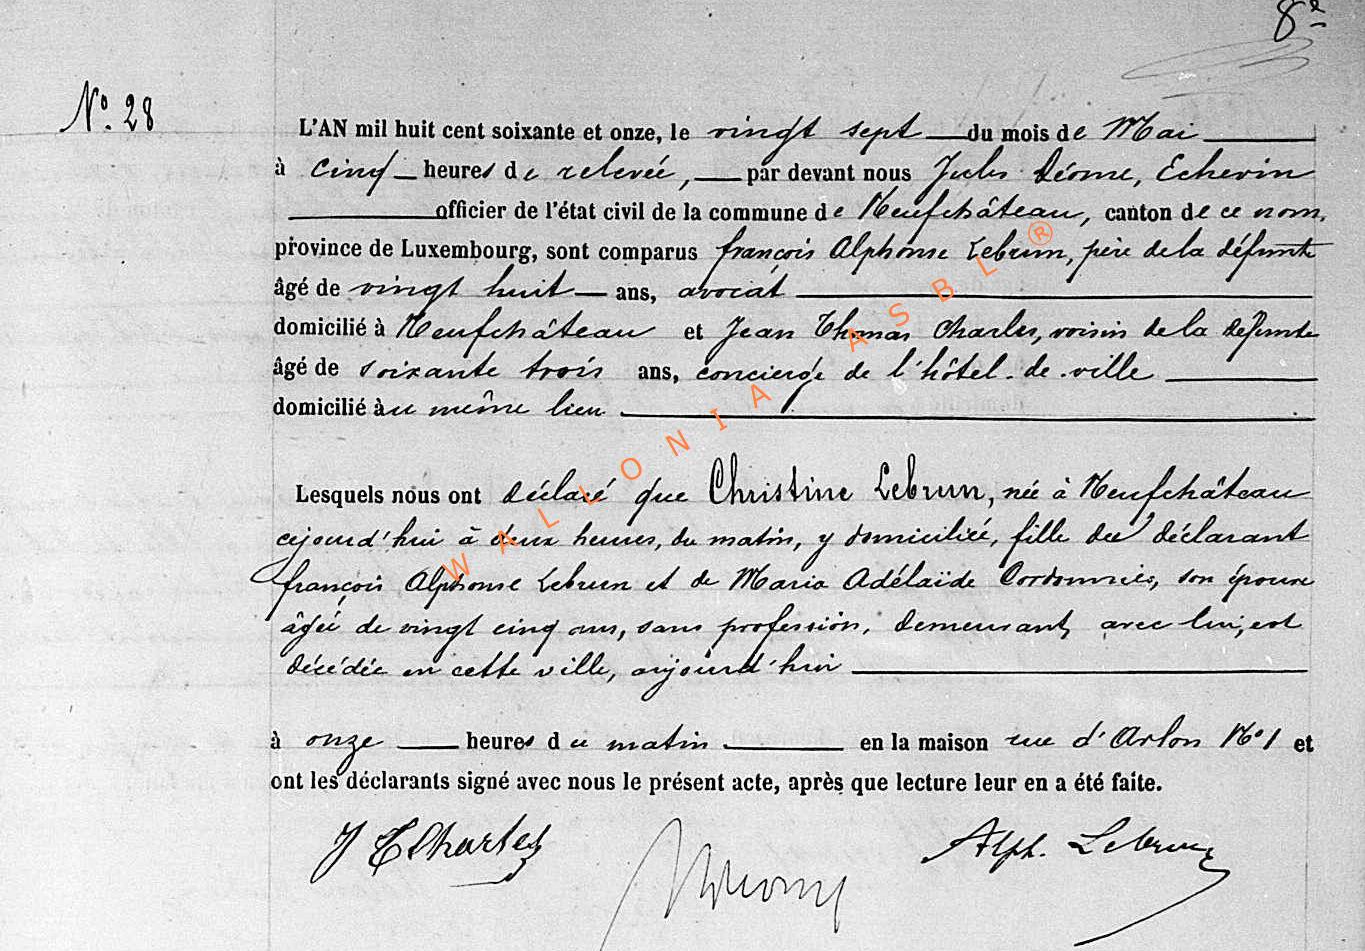 8e
No. 28
L'AN mil huit cent soixante et onze, le vingt sept du mois de Mai
à cinq heures de relevée, par devant nous Jules Déome, Echevin
officier de l'état civil de la commune de Neufchâteau, canton de ce nom,
province de Luxembourg, sont comparus françois Alphonse Lebrun, père de la défunte
âgé de vingt huit ans, avocat
domicilié à Neufchâteau et Jean Thomas Charles, voisin de la défunte
âgé de soixante trois ans, concierge de l'hôtel de ville
domicilié au même lieu
Lesquels nous ont déclaré que Christine Lebrun, née à Neufchâteau
aujourd'hui à deux heures, du matin, y domiciliée, fille du déclarant
françois Alphonse Lebrun et de Maria Adélaïde Cordonnier, son épouse
âgée de vingt cinq ans, sans profession, demeurant avec lui, est
décédée en cette ville, aujourd'hui
à onze heures du matin en la maison rue d'Arlon No 1 et
ont les déclarants signé avec nous le présent acte, après que lecture leur en a été faite.
J T Charles Alph. Lebrun
WALLONIA ASBL ®